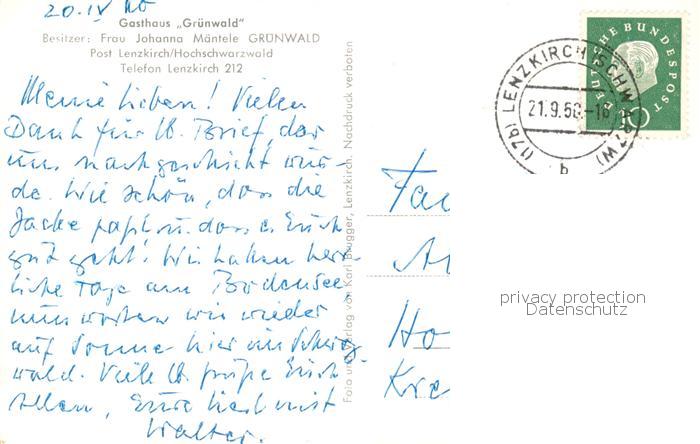 Gasthaus „Grünwald"
Besitzer: Frau Johanna Mäntele GRÜNWALD
Post Lenzkirch/Hochschwarzwald
Telefon Lenzkirch 212
Meine Lieben! Vielen
Dank für lb. Brief, der
uns nachgeschickt wur-
de. Wie schön, dass die
Jacke paßt u. dass es Euch
gut geht! Wir haben herr-
liche Tage am Bodensee
nun warten wir wieder
auf Sonne hier im Schwarz-
wald. Viele lb. Grüße Euch
allen, Eure
Walter.
Foto und Verlag von Karl Brugger, Lenzkirch. Nachdruck verboten
DEUTSCHE BUNDESPOST
(17b) LENZKIRCH (SCHWARZW)
b
Ho
Kre
privacy protection
Datenschutz